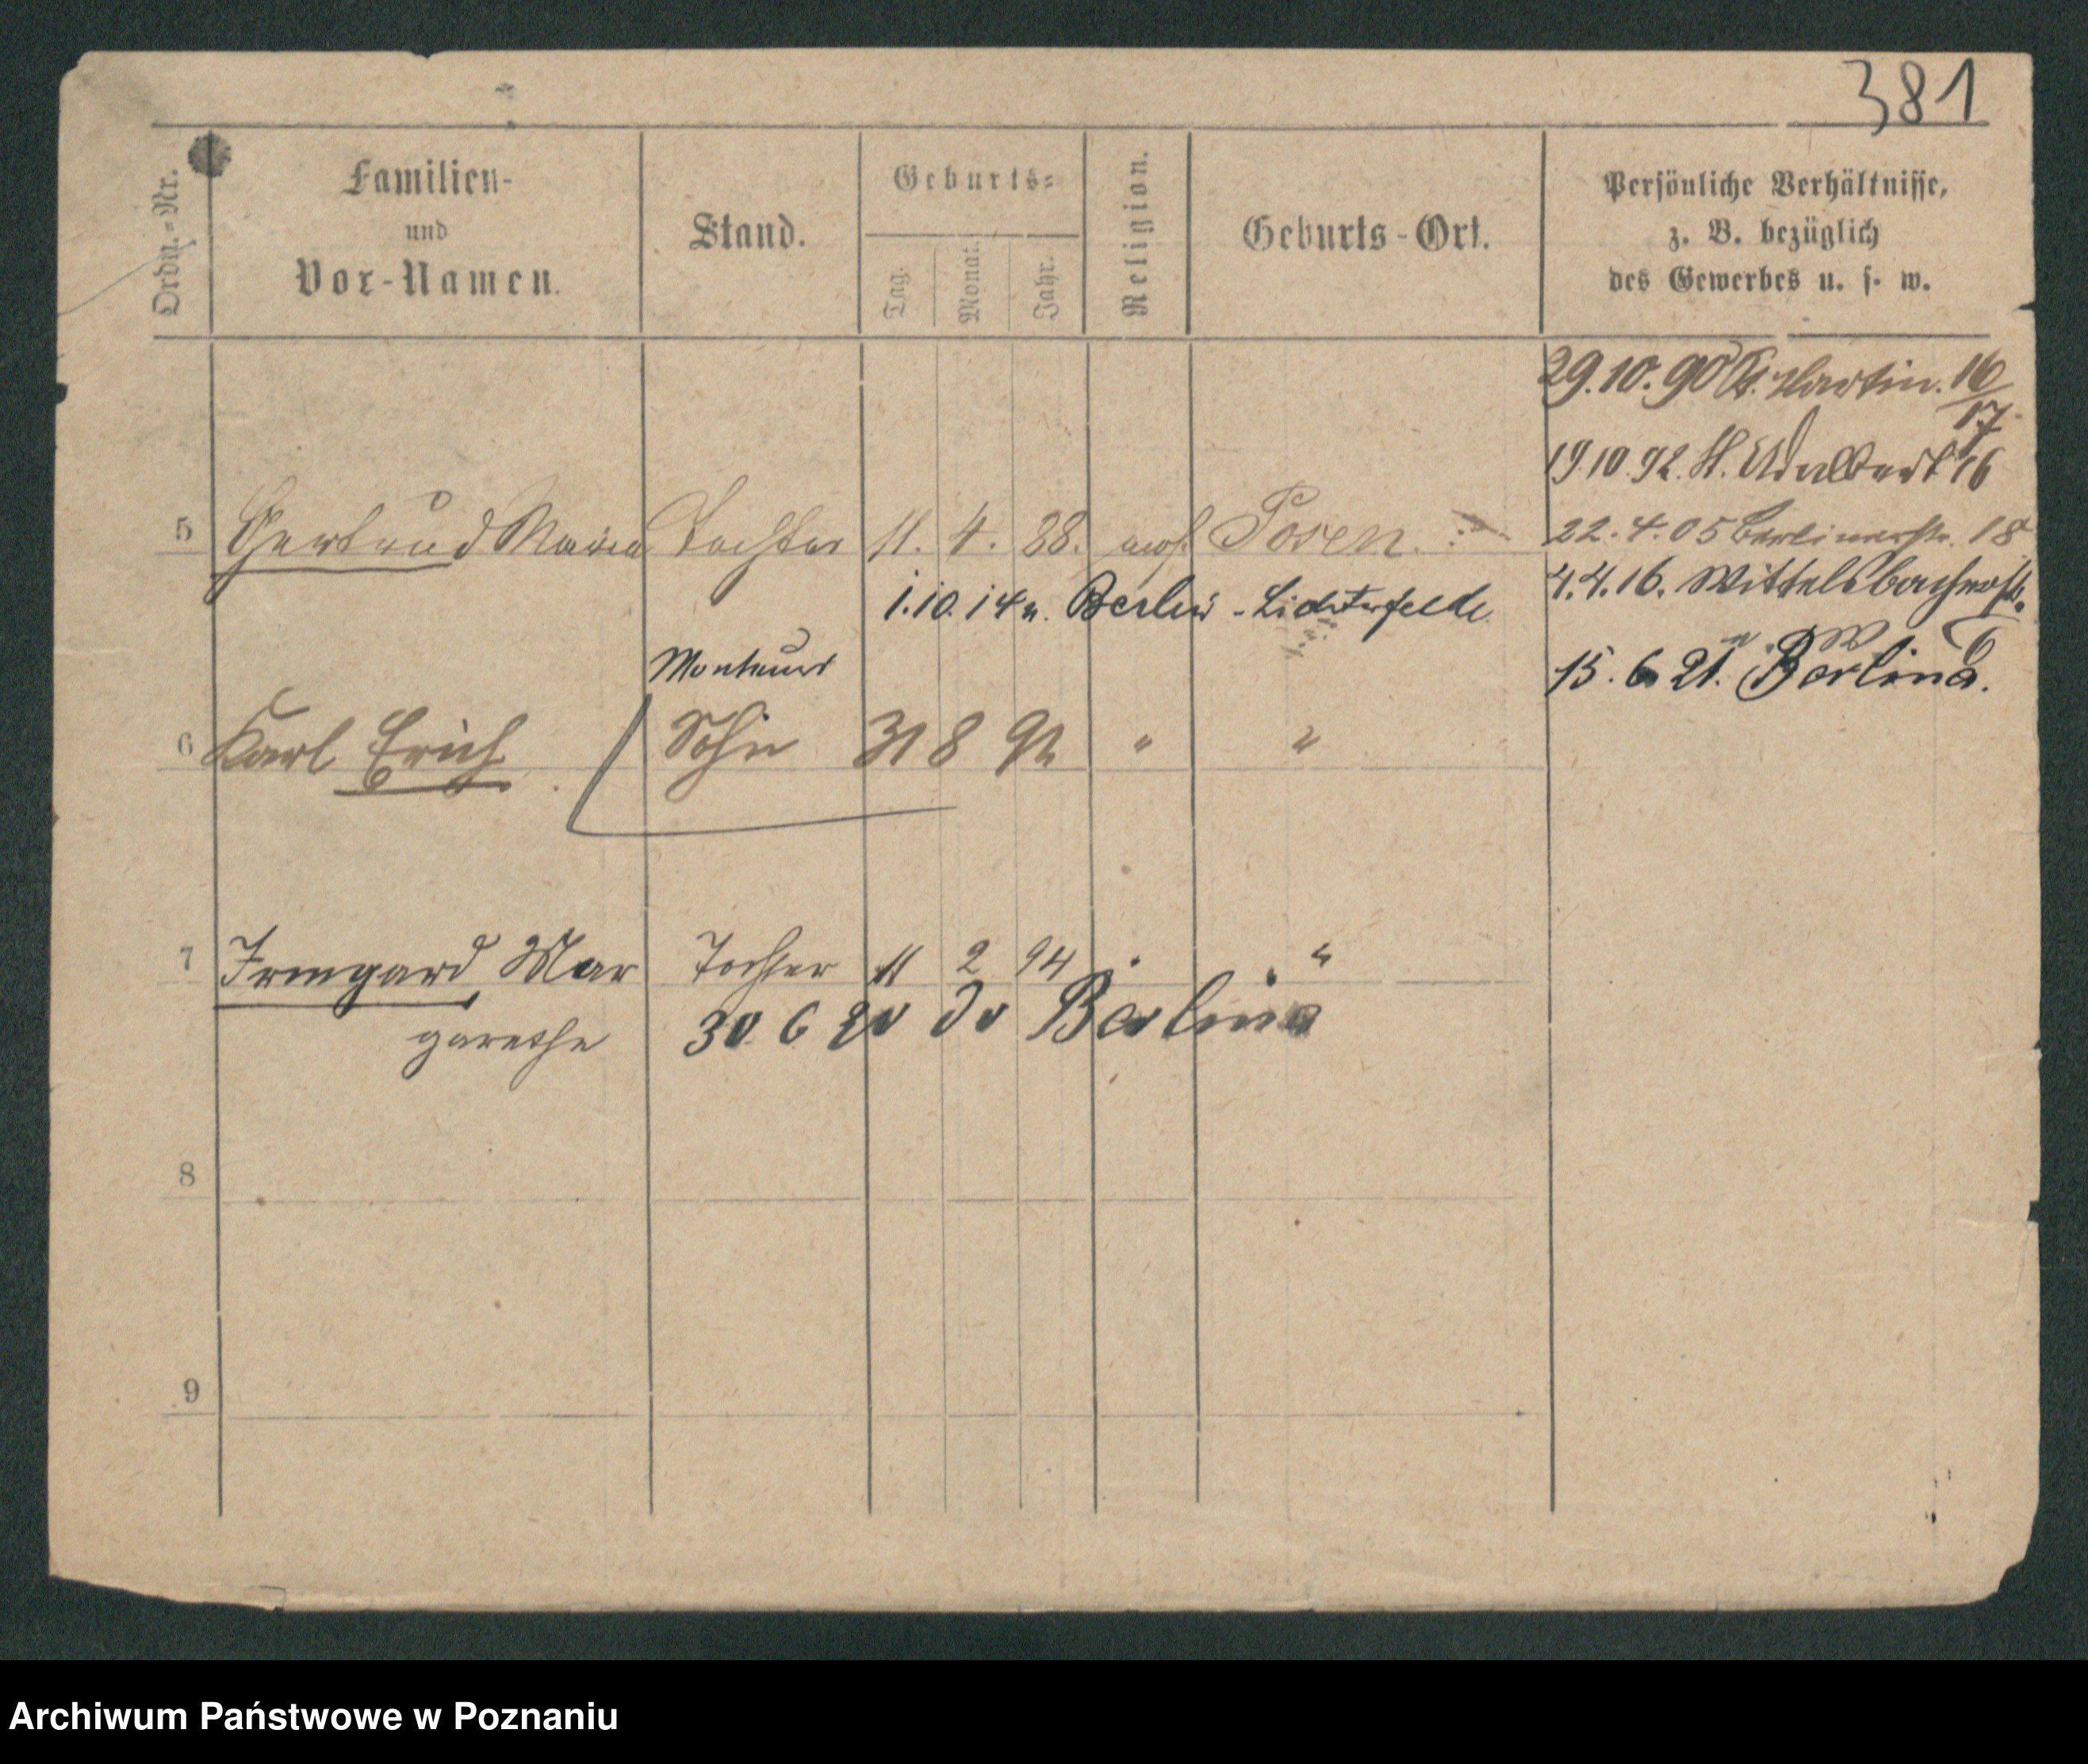 381
Ordn.-Nr.
Familien-
und
Vor-Namen.
Stand.
Geburts-
Tag.
Monat.
Jahr.
Religion.
Geburts-Ort.
Persönliche Verhältnisse,
z. B. bezüglich
des Gewerbes u. s. w.
29.10.90 St. Martin. 16/17.
19.10.92. St. Adalbert 16
5 Gertrud Maria Tochter 11. 4. 88. Posen.
22.4.05 Berlinerstr. 18
1.10.14 n. Berlin - Lichterfelde.
4.4.16. Wittelsbacherstr.
Monteur
15.6.21. Berlina.
6 Karl Erich Sohn 31 8 92 " "
7 Irmgard Mar Tochter 11 2 94 " "
garethe 30 6 20 do Berlina
8
9
Archiwum Państwowe w Poznaniu